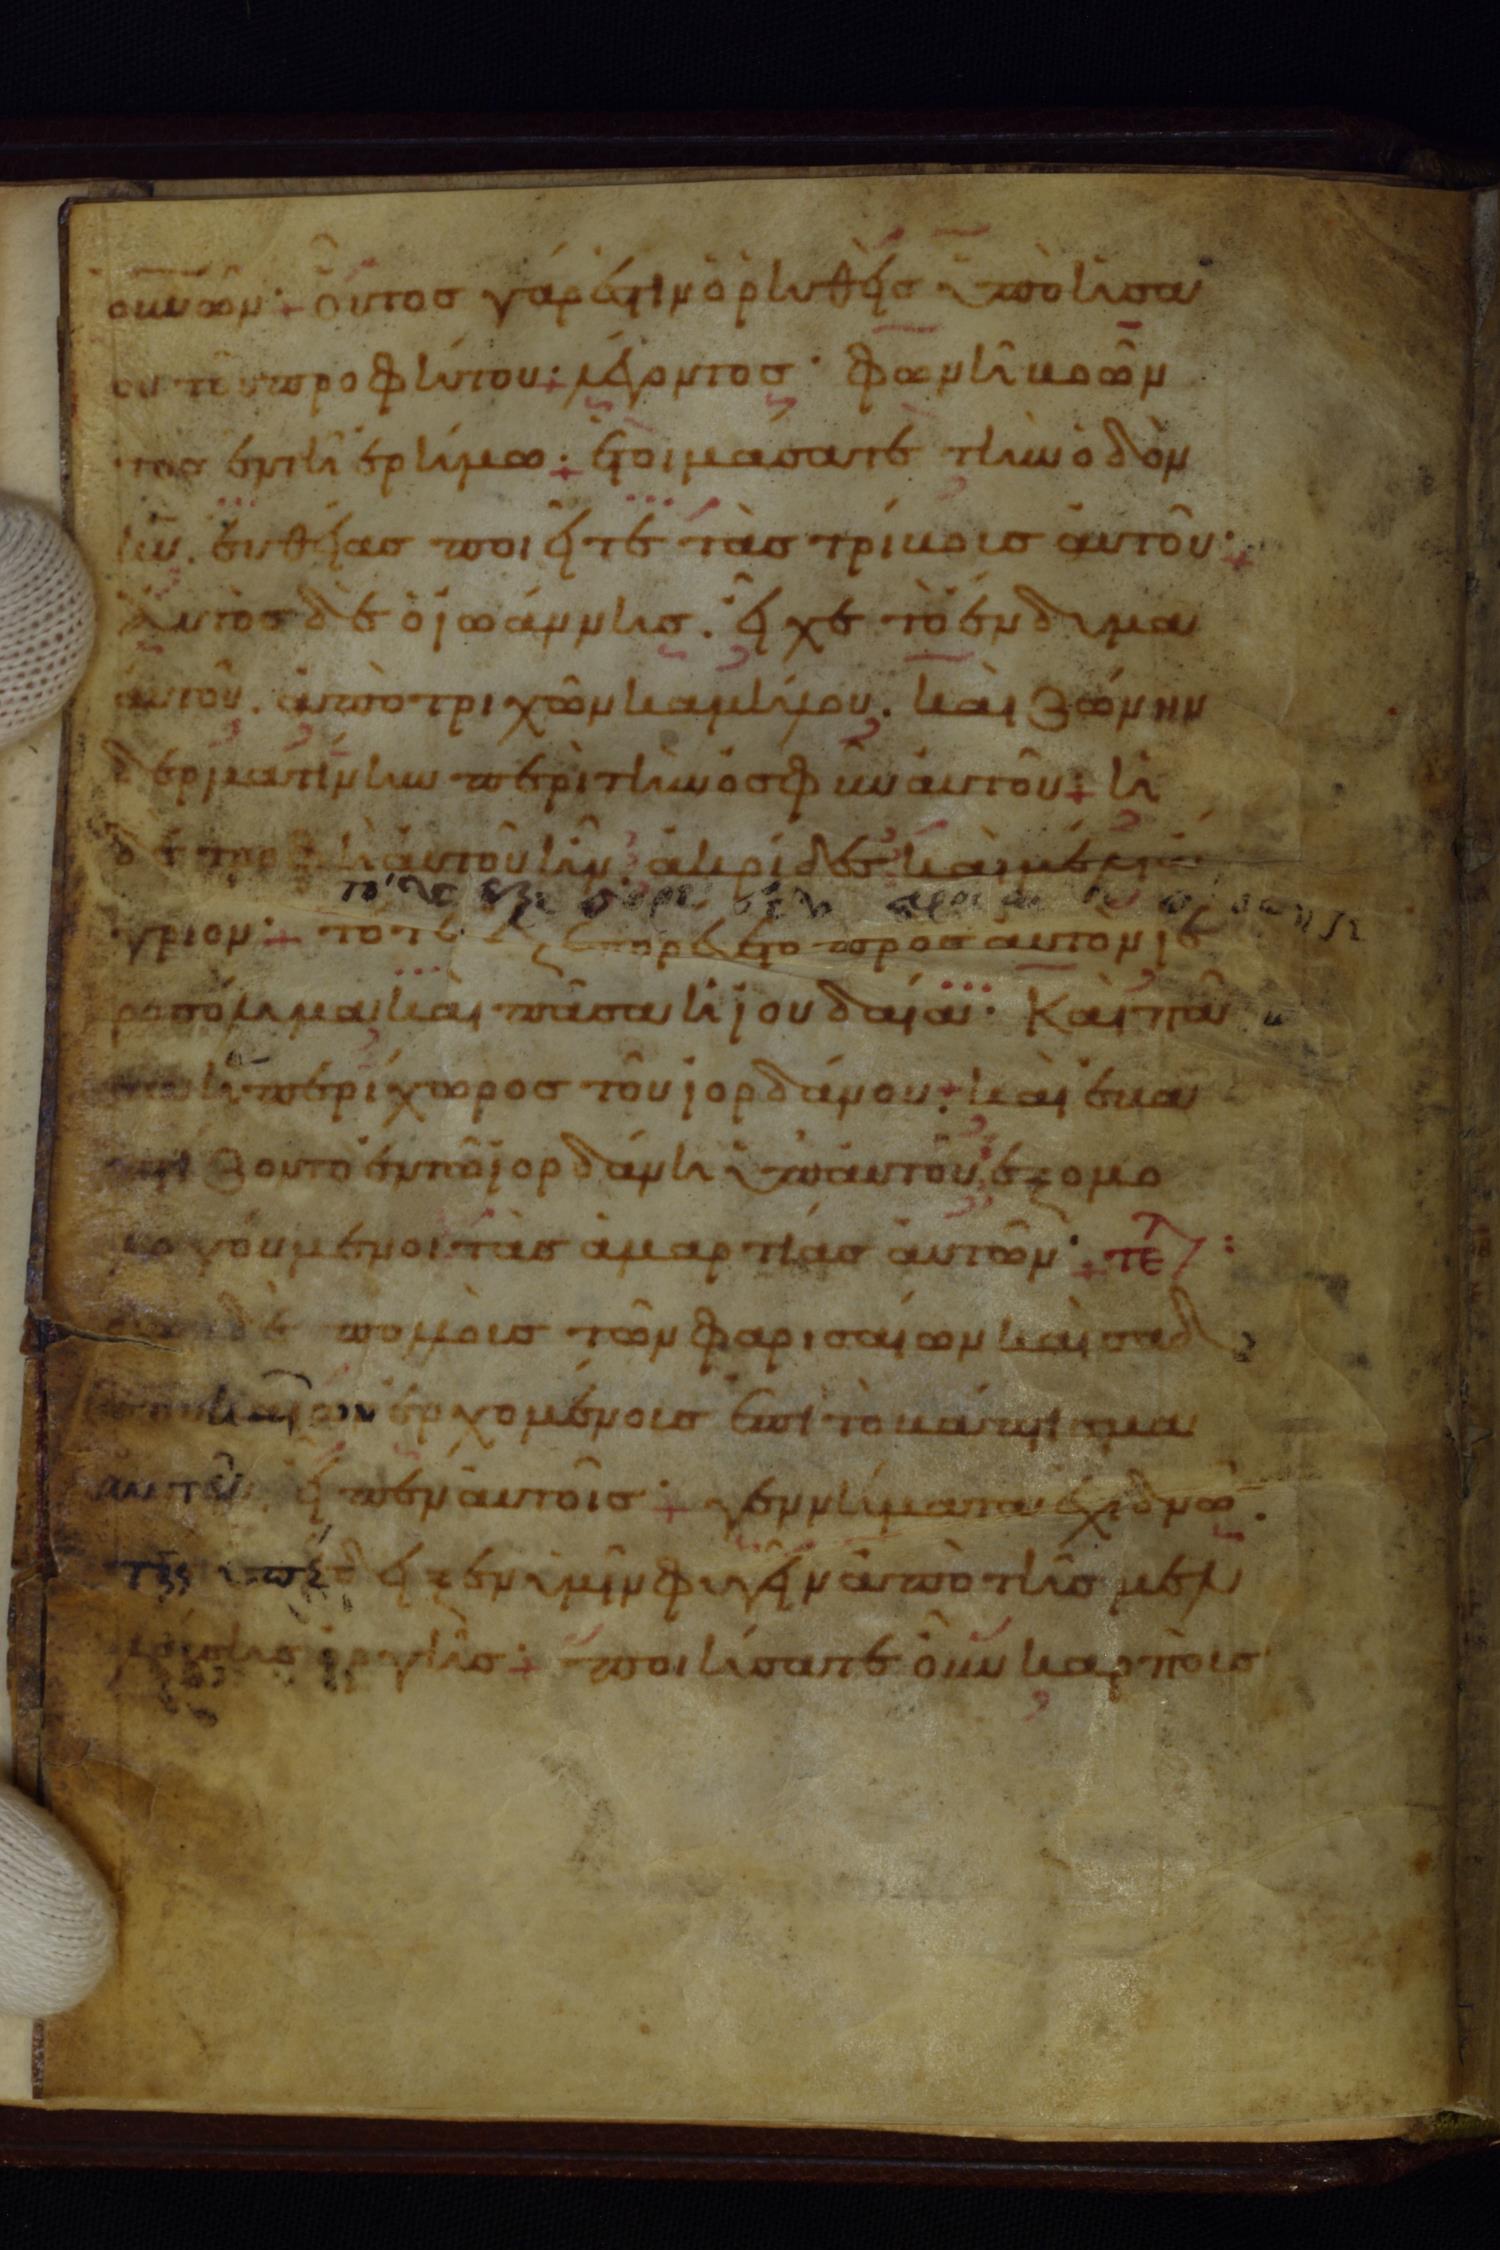 ουνῶν· + οὗτος γάρ ἐστιν ὁ ρηθεὶς ὑπὸ ἡσα
ου τοῦ προφήτου· + λέγοντος· φωνὴ βοῶν
τος ἐν τῆ ἐρήμω· + ἑτοιμάσατε τὴν ὁδὸν
κυ. ἐυθείας ποιεῖτε τὰς τρίβοις ἀυτοῦ· +
Ἀυτὸς δὲ ὁ ἰωάννης. εἶχε τὸ ἔνδυμα
ἀυτοῦ. ἀπὸ τριχῶν καμήλου. καὶ ζώνην
δερματίνην περὶ τὴν ὀσφῦν ἀυτοῦ· + ἡ
δὲ τροφὴ ἀυτοῦ ἦν. ἀκρίδες καὶ μέλι ἄ
γριον· + τότε ἐξεπορεύετο προς ἀυτὸν ἱε
ροσόλυμα καὶ πᾶσα ἡ ἰουδαία· Καὶ πᾶ
σα ἡ περίχωρος τοῦ ἰορδάνου· + καὶ ἐβα
πτίζοντο ἐν τῶ ἰορδάνη ὑπ ἀυτοῦ ἐξομο
λογούμενοι τὰς ἁμαρτίας ἀυτῶν· + τελ:
δὲ πολλοις τῶν φαρισαίων καὶ σαδ
δουκαίων ἐρχομένοις ἐπὶ τὸ βάπτισμα
αυτοῦ. εἶπεν ἀυτοῖς· + γεννήματα ἐχιδνῶ.
τίς ὑπέδειξεν ὑμῖν φυγεῖν ἀπὸ τῆς μελ
λούσης ὀργῆς· + ποιήσατε οὖν καρποὶς